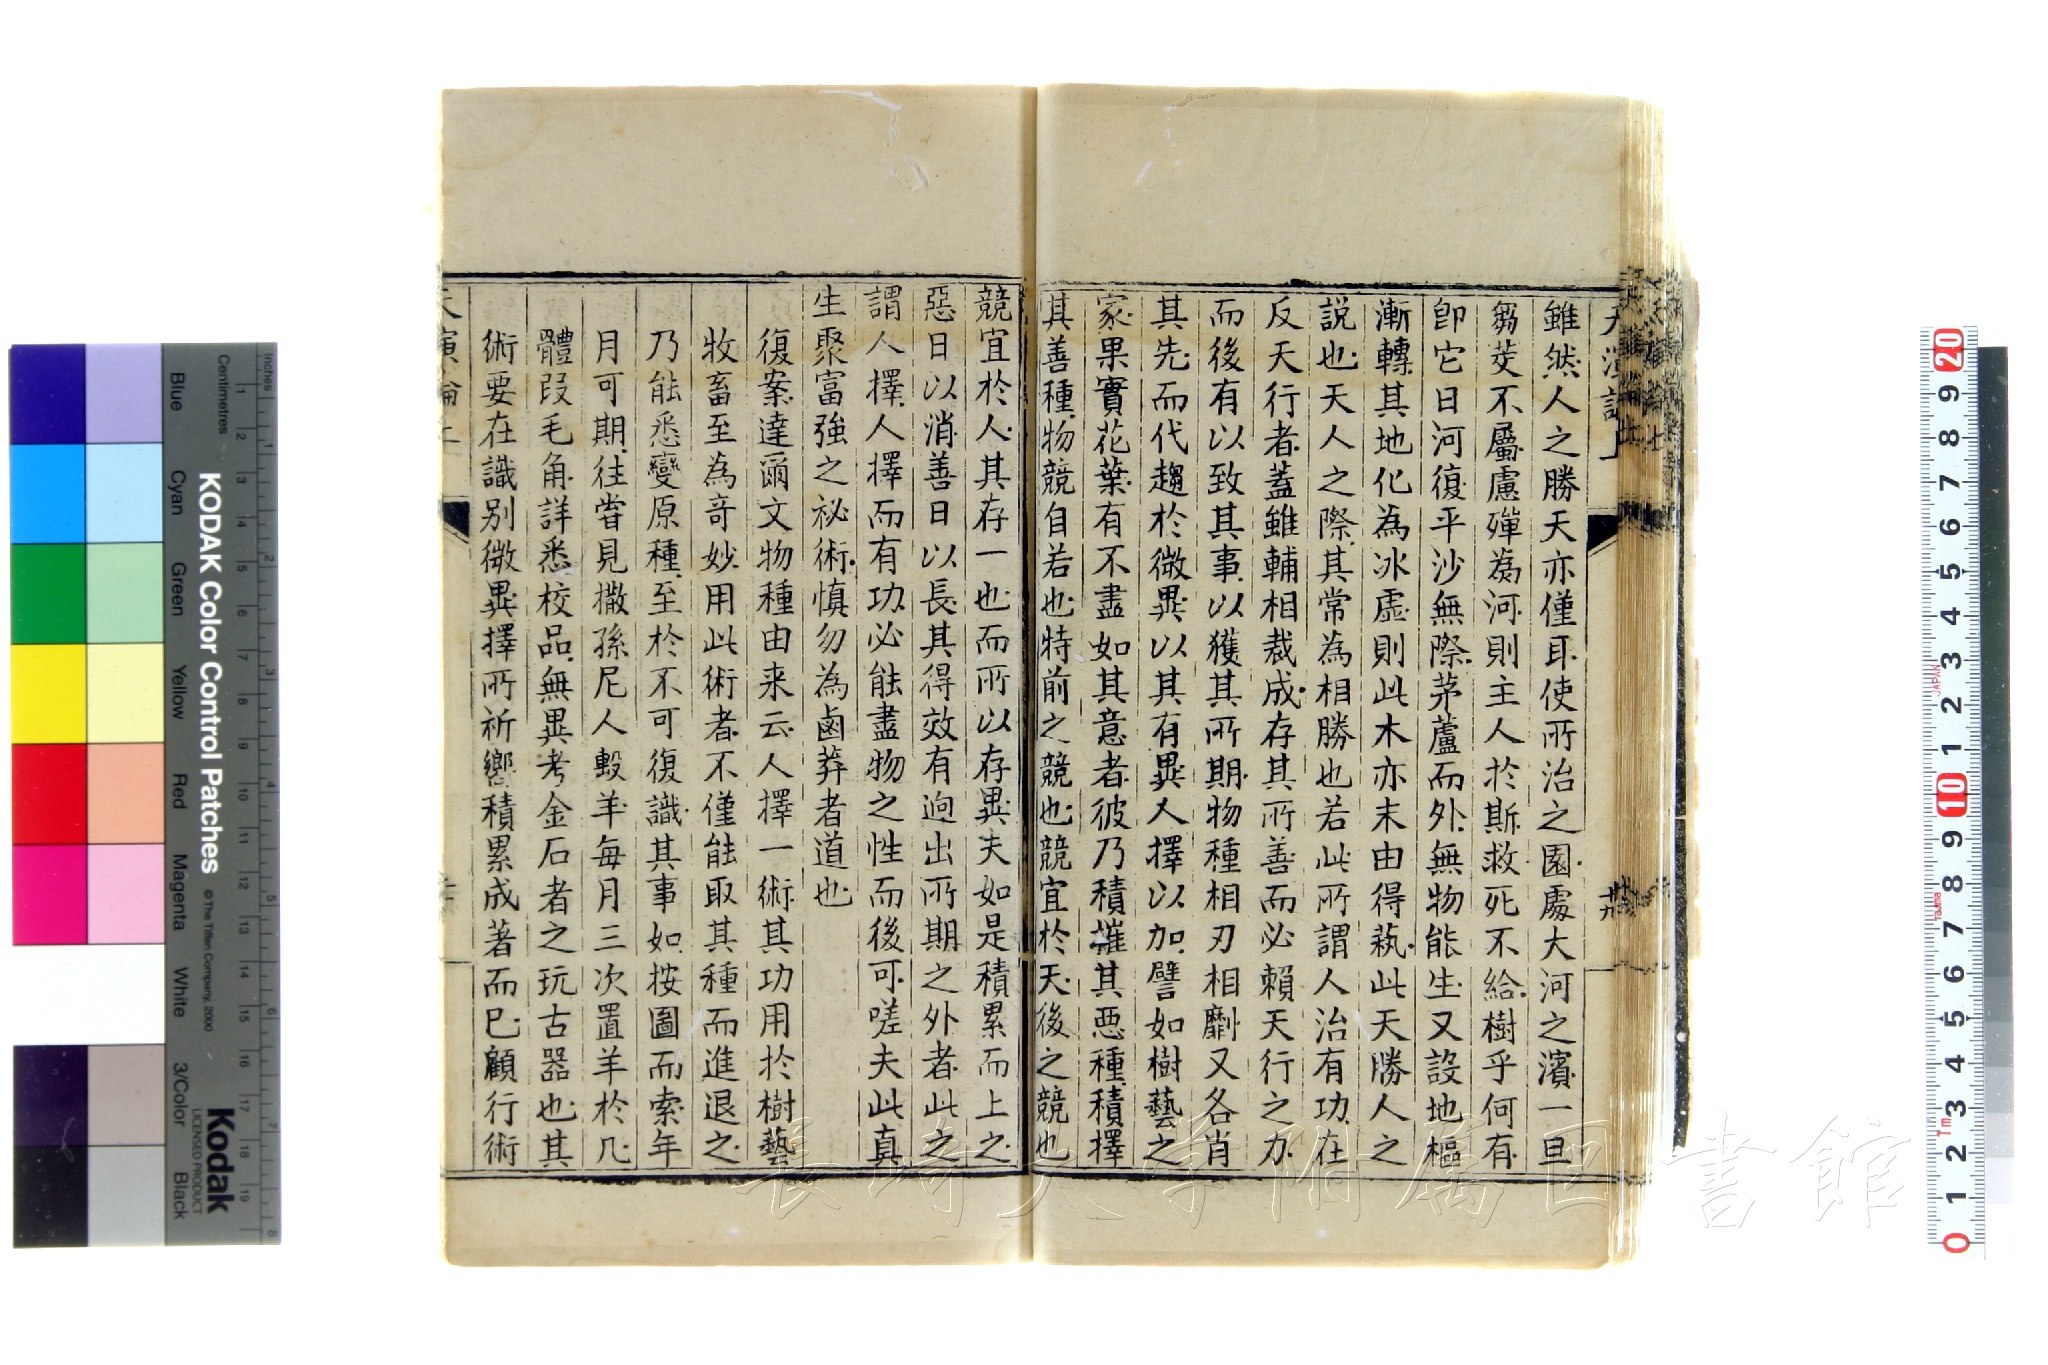 天演論上
雖然人之勝天亦僅耳使所治之園處大河之濱一旦
芻茭不屬慮殫為河則主人於斯救死不給樹乎何有
即它日河復平沙無際茅蘆而外無物能生又設地樞
漸轉其地化為冰虛則此木亦末由得蓺此天勝人之
說也天人之際其常為相勝也若此所謂人治有功在
反天行者蓋雖輔相裁成存其所善而必賴天行之力
而後有以致其事以獲其所期物種相刃相劘又各肖
其先而代趨於微異以其有異人擇以加譬如樹藝之
家果實花葉有不盡如其意者彼乃積摧其惡種積擇
其善種物競自若也特前之競也競宜於天後之競也
競宜於人其存一也而所以存異夫如是積累而上之
惡日以消善日以長其得效有迥出所期之外者此之
謂人擇人擇而有功必能盡物之性而後可嗟夫此真
生聚富強之祕術慎勿為鹵莽者道也
復案達爾文物種由來云人擇一術其功用於樹藝
牧畜至為奇妙用此術者不僅能取其種而進退之
乃能悉變原種至於不可復識其事如按圖而索年
月可期往嘗見撒孫尼人擊羊每月三次置羊於几
體段毛角詳悉校品無異考金石者之玩古器也其
術要在識別微異擇所祈嚮積累成著而已顧行術
天演論上
長崎大學附屬図書館
KODAK Color Control Patches
© The Tiffen Company, 2000
Kodak
LICENSED PRODUCT
Inches
Centimetres
Blue
Cyan
Green
Yellow
Red
Magenta
White
3/Color
Black
JAPAN
Tajima